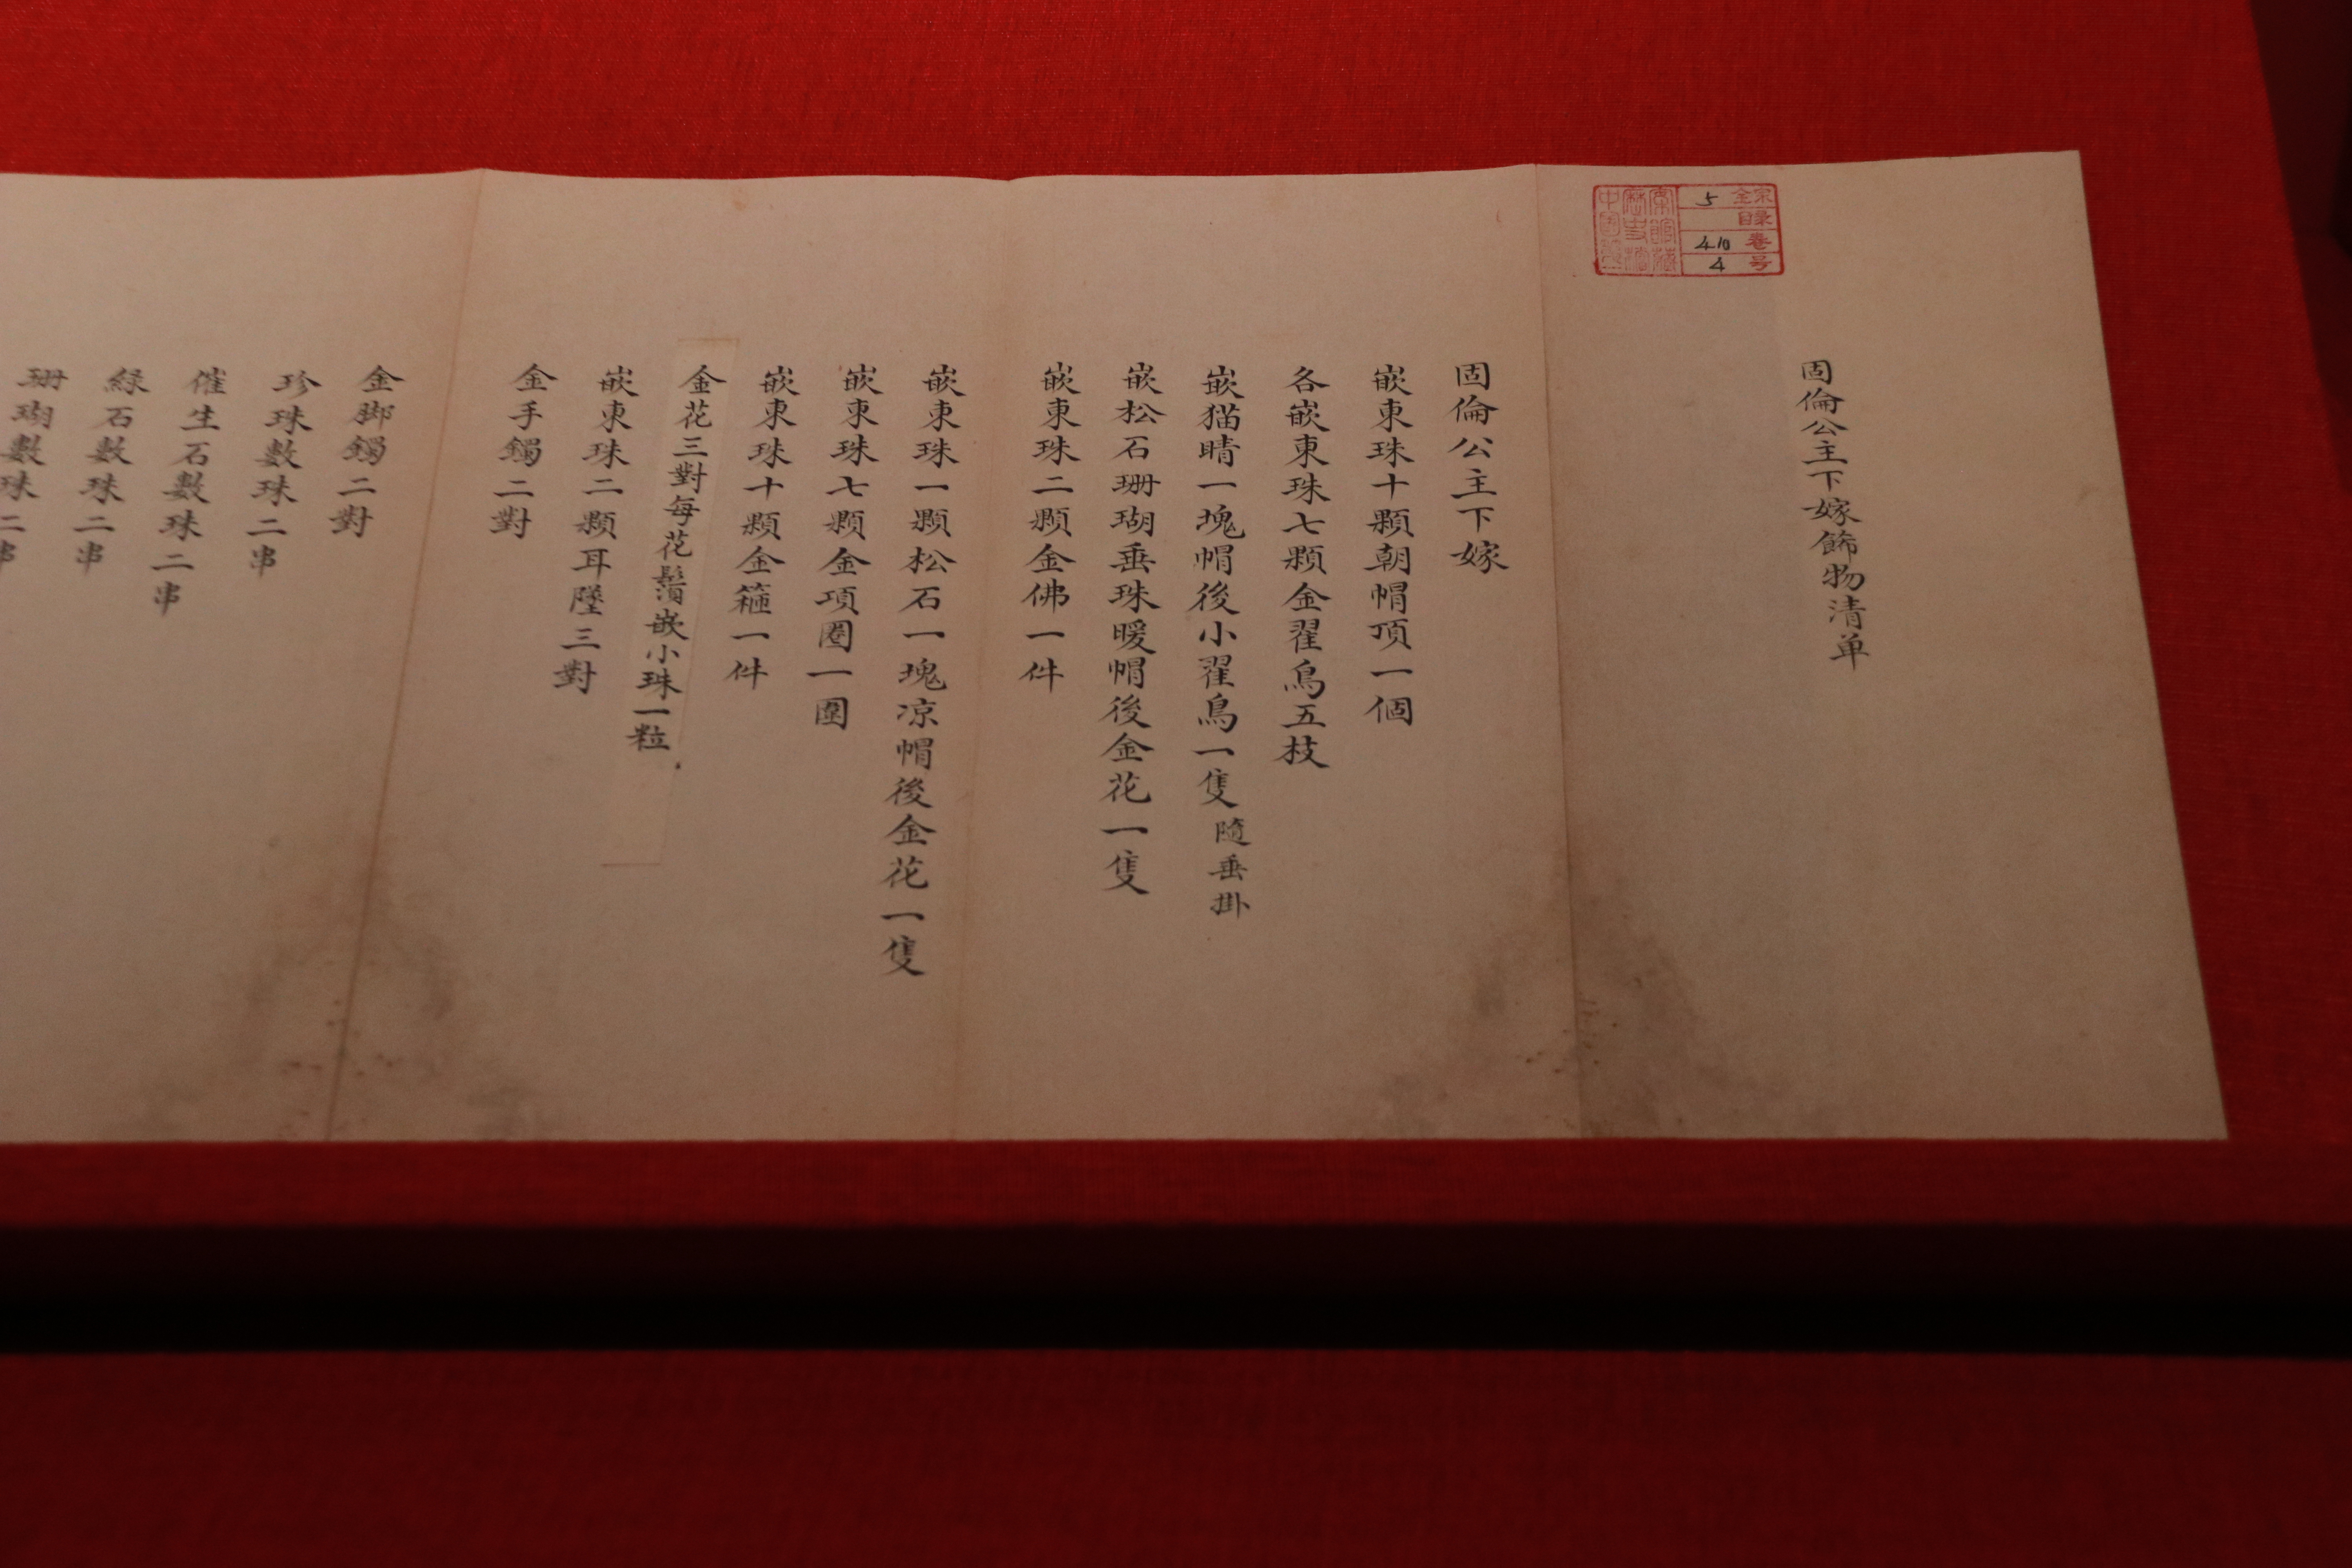 固倫公主下嫁飾物清单
全宗 5
目录
卷 410
号 4
中國第一
歷史檔
案館藏
固倫公主下嫁
嵌東珠十顆朝帽頂一個
各嵌東珠七顆金翟鳥五枝
嵌猫晴一塊帽後小翟鳥一隻隨垂掛
嵌松石珊瑚垂珠暖帽後金花一隻
嵌東珠二顆金佛一件
嵌東珠一顆松石一塊凉帽後金花一隻
嵌東珠七顆金項圈一圍
嵌東珠十顆金箍一件
金花三對每花鬚嵌小珠一粒
嵌東珠二顆耳墜三對
金手鐲二對
金脚鐲二對
珍珠數珠二串
催生石數珠二串
緑石數珠二串
珊瑚數珠二串